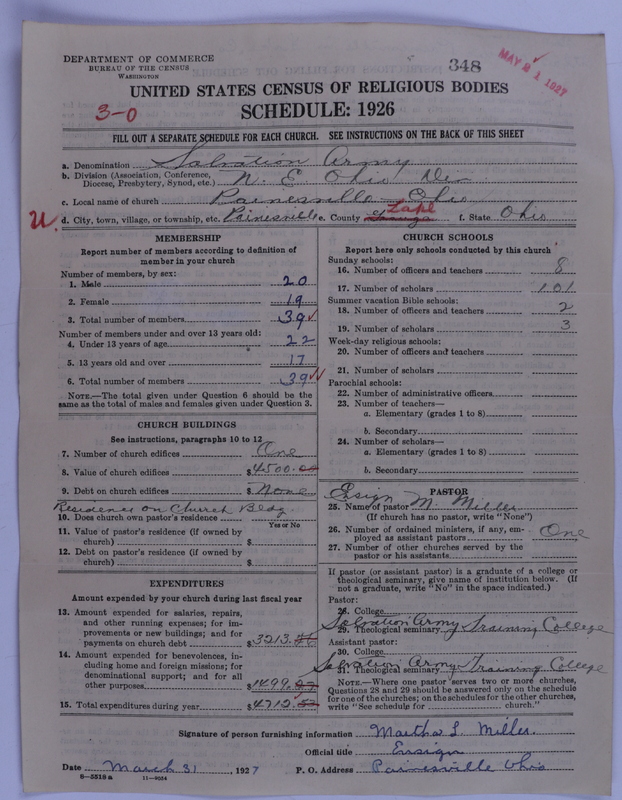 DEPARTMENT OF COMMERCE
BUREAU OF THE CENSUS
WASHINGTON
348
MAY 21 1927
UNITED STATES CENSUS OF RELIGIOUS BODIES
SCHEDULE: 1926
3-0
FILL OUT A SEPARATE SCHEDULE FOR EACH CHURCH. SEE INSTRUCTIONS ON THE BACK OF THIS SHEET
a. Denomination Salvation Army
b. Division (Association, Conference, Diocese, Presbytery, Synod, etc.) N. E. Ohio Div
c. Local name of church Painesville Ohio
U d. City, town, village, or township, etc. Painesville e. County Lake f. State Ohio
MEMBERSHIP
Report number of members according to definition of
member in your church
Number of members, by sex:
1. Male 20
2. Female 19
3. Total number of members 39
Number of members under and over 13 years old:
4. Under 13 years of age 22
5. 13 years old and over 17
6. Total number of members 39
NOTE.—The total given under Question 6 should be the
same as the total of males and females given under Question 3.
CHURCH BUILDINGS
See instructions, paragraphs 10 to 12
7. Number of church edifices One
8. Value of church edifices $4500.00
9. Debt on church edifices $ None
Residence on Church Bldg.
10. Does church own pastor's residence
Yes or No
11. Value of pastor's residence (if owned by
church) $
12. Debt on pastor's residence (if owned by
church) $
EXPENDITURES
Amount expended by your church during last fiscal year
13. Amount expended for salaries, repairs,
and other running expenses; for im-
provements or new buildings; and for
payments on church debt $3213.
14. Amount expended for benevolences, in-
cluding home and foreign missions; for
denominational support; and for all
other purposes $1499.
15. Total expenditures during year $4712.
CHURCH SCHOOLS
Report here only schools conducted by this church
Sunday schools:
16. Number of officers and teachers 8
17. Number of scholars 101
Summer vacation Bible schools:
18. Number of officers and teachers 2
19. Number of scholars 3
Week-day religious schools:
20. Number of officers and teachers
21. Number of scholars
Parochial schools:
22. Number of administrative officers
23. Number of teachers—
a. Elementary (grades 1 to 8)
b. Secondary
24. Number of scholars—
a. Elementary (grades 1 to 8)
b. Secondary
PASTOR
25. Name of pastor Ensign M. Miller
(If church has no pastor, write "None")
26. Number of ordained ministers, if any, em-
ployed as assistant pastors One
27. Number of other churches served by the
pastor or his assistants
If pastor (or assistant pastor) is a graduate of a college or
theological seminary, give name of institution below. (If
not a graduate, write "No" in the space indicated.)
Pastor:
28. College
29. Theological seminary Salvation Army Training College
Assistant pastor:
30. College
31. Theological seminary Salvation Army Training College
NOTE.—Where one pastor serves two or more churches,
Questions 28 and 29 should be answered only on the schedule
for one of the churches; on the schedules for the other churches,
write "See schedule for church."
Signature of person furnishing information Martha L. Miller.
Official title Ensign
Date March 31 1927 P. O. Address Painesville Ohio
8-5318a 11-9054